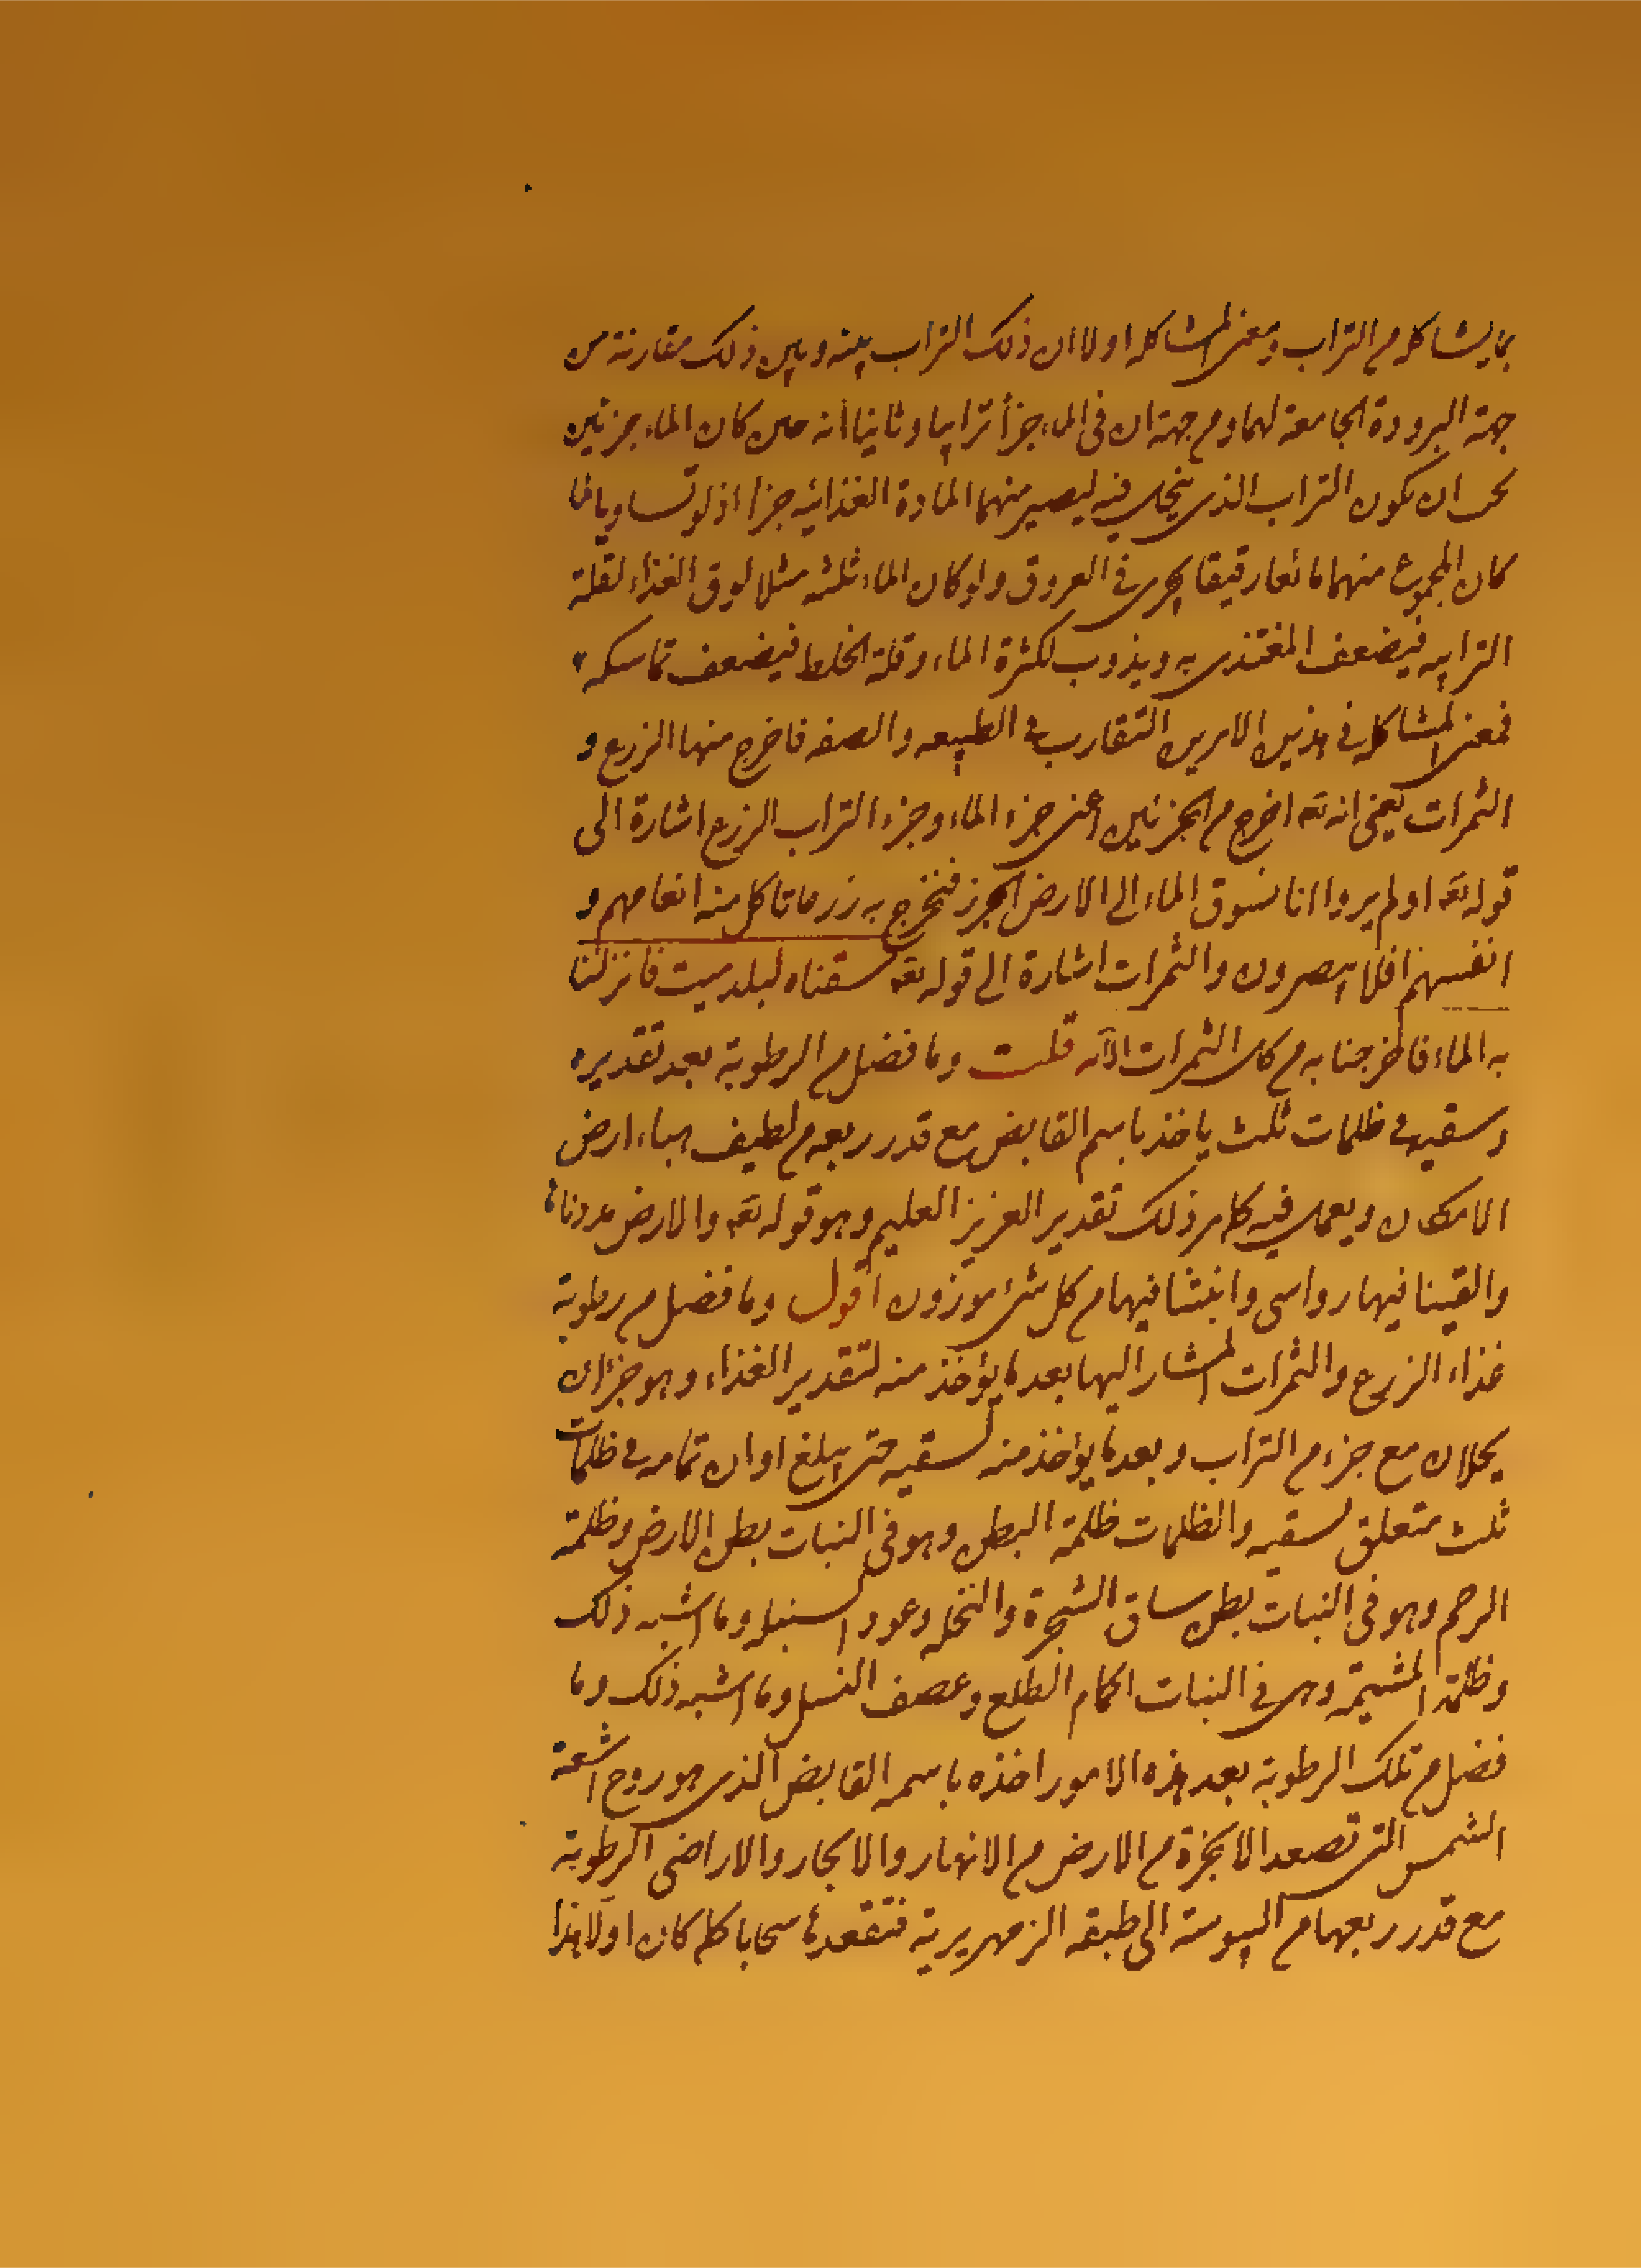 بما يشاكله من التراب ومعنى المشاكله اولا ان ذلك التراب بينه وبين ذلك مقارنة من
جهة البرودة الجامعة لهما وم جهة ان فى الماء جزأ ترابيا وثانيا انه حين كان الماء جزئين
يجب ان يكون التراب الذى ينحل فيه ليصير منهما المادة الغذائيه جزا اذ لو تساويا لما
كان المجموع منهما مائعا رقيقا يجرى فى العروق ولو كان الماء ثلثه مثلا لرق الغذاء لقلة
الترابيه فيضعف المغتذى به ويذوب لكثرة الماء وقلة الخلط فيضعف تماسكه
فمعنى المشاكله فى هذين الامرين التقارب فى الطبيعه والصفه فاخرج منها الزرع و
الثمرات يعنى انه تعه اخرج م الجزئين اعنى جزء الماء وجزء التراب الزرع اشارة الى
قوله تعه اولم يروا انا نسوق الماء الى الارض الجرز فنخرج به زرعا تاكل منه انعامهم و
انفسهم افلا يبصرون والثمرات اشارة الى قوله تعه سقناه لبلد ميت فانزلنا
به الماء فاخرجنا به م كل الثمرات الآيه قلت وما فضل م الرطوبة بعد تقديره
وسقيه فى ظلمات ثلث ياخذ باسم القابض مع قدر ربعه م لطيف هباء ارض
الامكان ويعمل فيه كلمر ذلك تقدير العزيز العليم وهو قوله تعه والارض مددناها
والقينا فيها رواسى وانبتنا فيها م كل شئ موزون اقول وما فضل م رطوبة
غذاء الزرع والثمرات المشار اليها بعد ما يؤخذ منه لتقدير الغذاء وهو جزءان
يحلان مع جزء م التراب وبعد ما يؤخذ منه لسقيه حتى يبلغ اوان تمامه فى ظلمات
ثلث متعلق بسقيه والظلمات ظلمة البطن وهو فى النبات بطن الارض وظلمة
الرحم وهو فى النبات بطن ساق الشجرة والنخله وعود السنبله وما اشبه ذلك
وظلمة المشيمة وهى فى النبات اكمام الطلع وعصف السنبل وما اشبه ذلك وما
فضل م تلك الرطوبة بعد هذه الامور اخذه باسمه القابض الذى هو روح اشعة
الشمس التى تصعد الابخرة م الارض م الانهار والابحار والاراضى الرطوبة
مع قدر ربعها م اليبوسة الى طبقه الزمهريرية فتقعدها سحابا كما كان اولا هذا